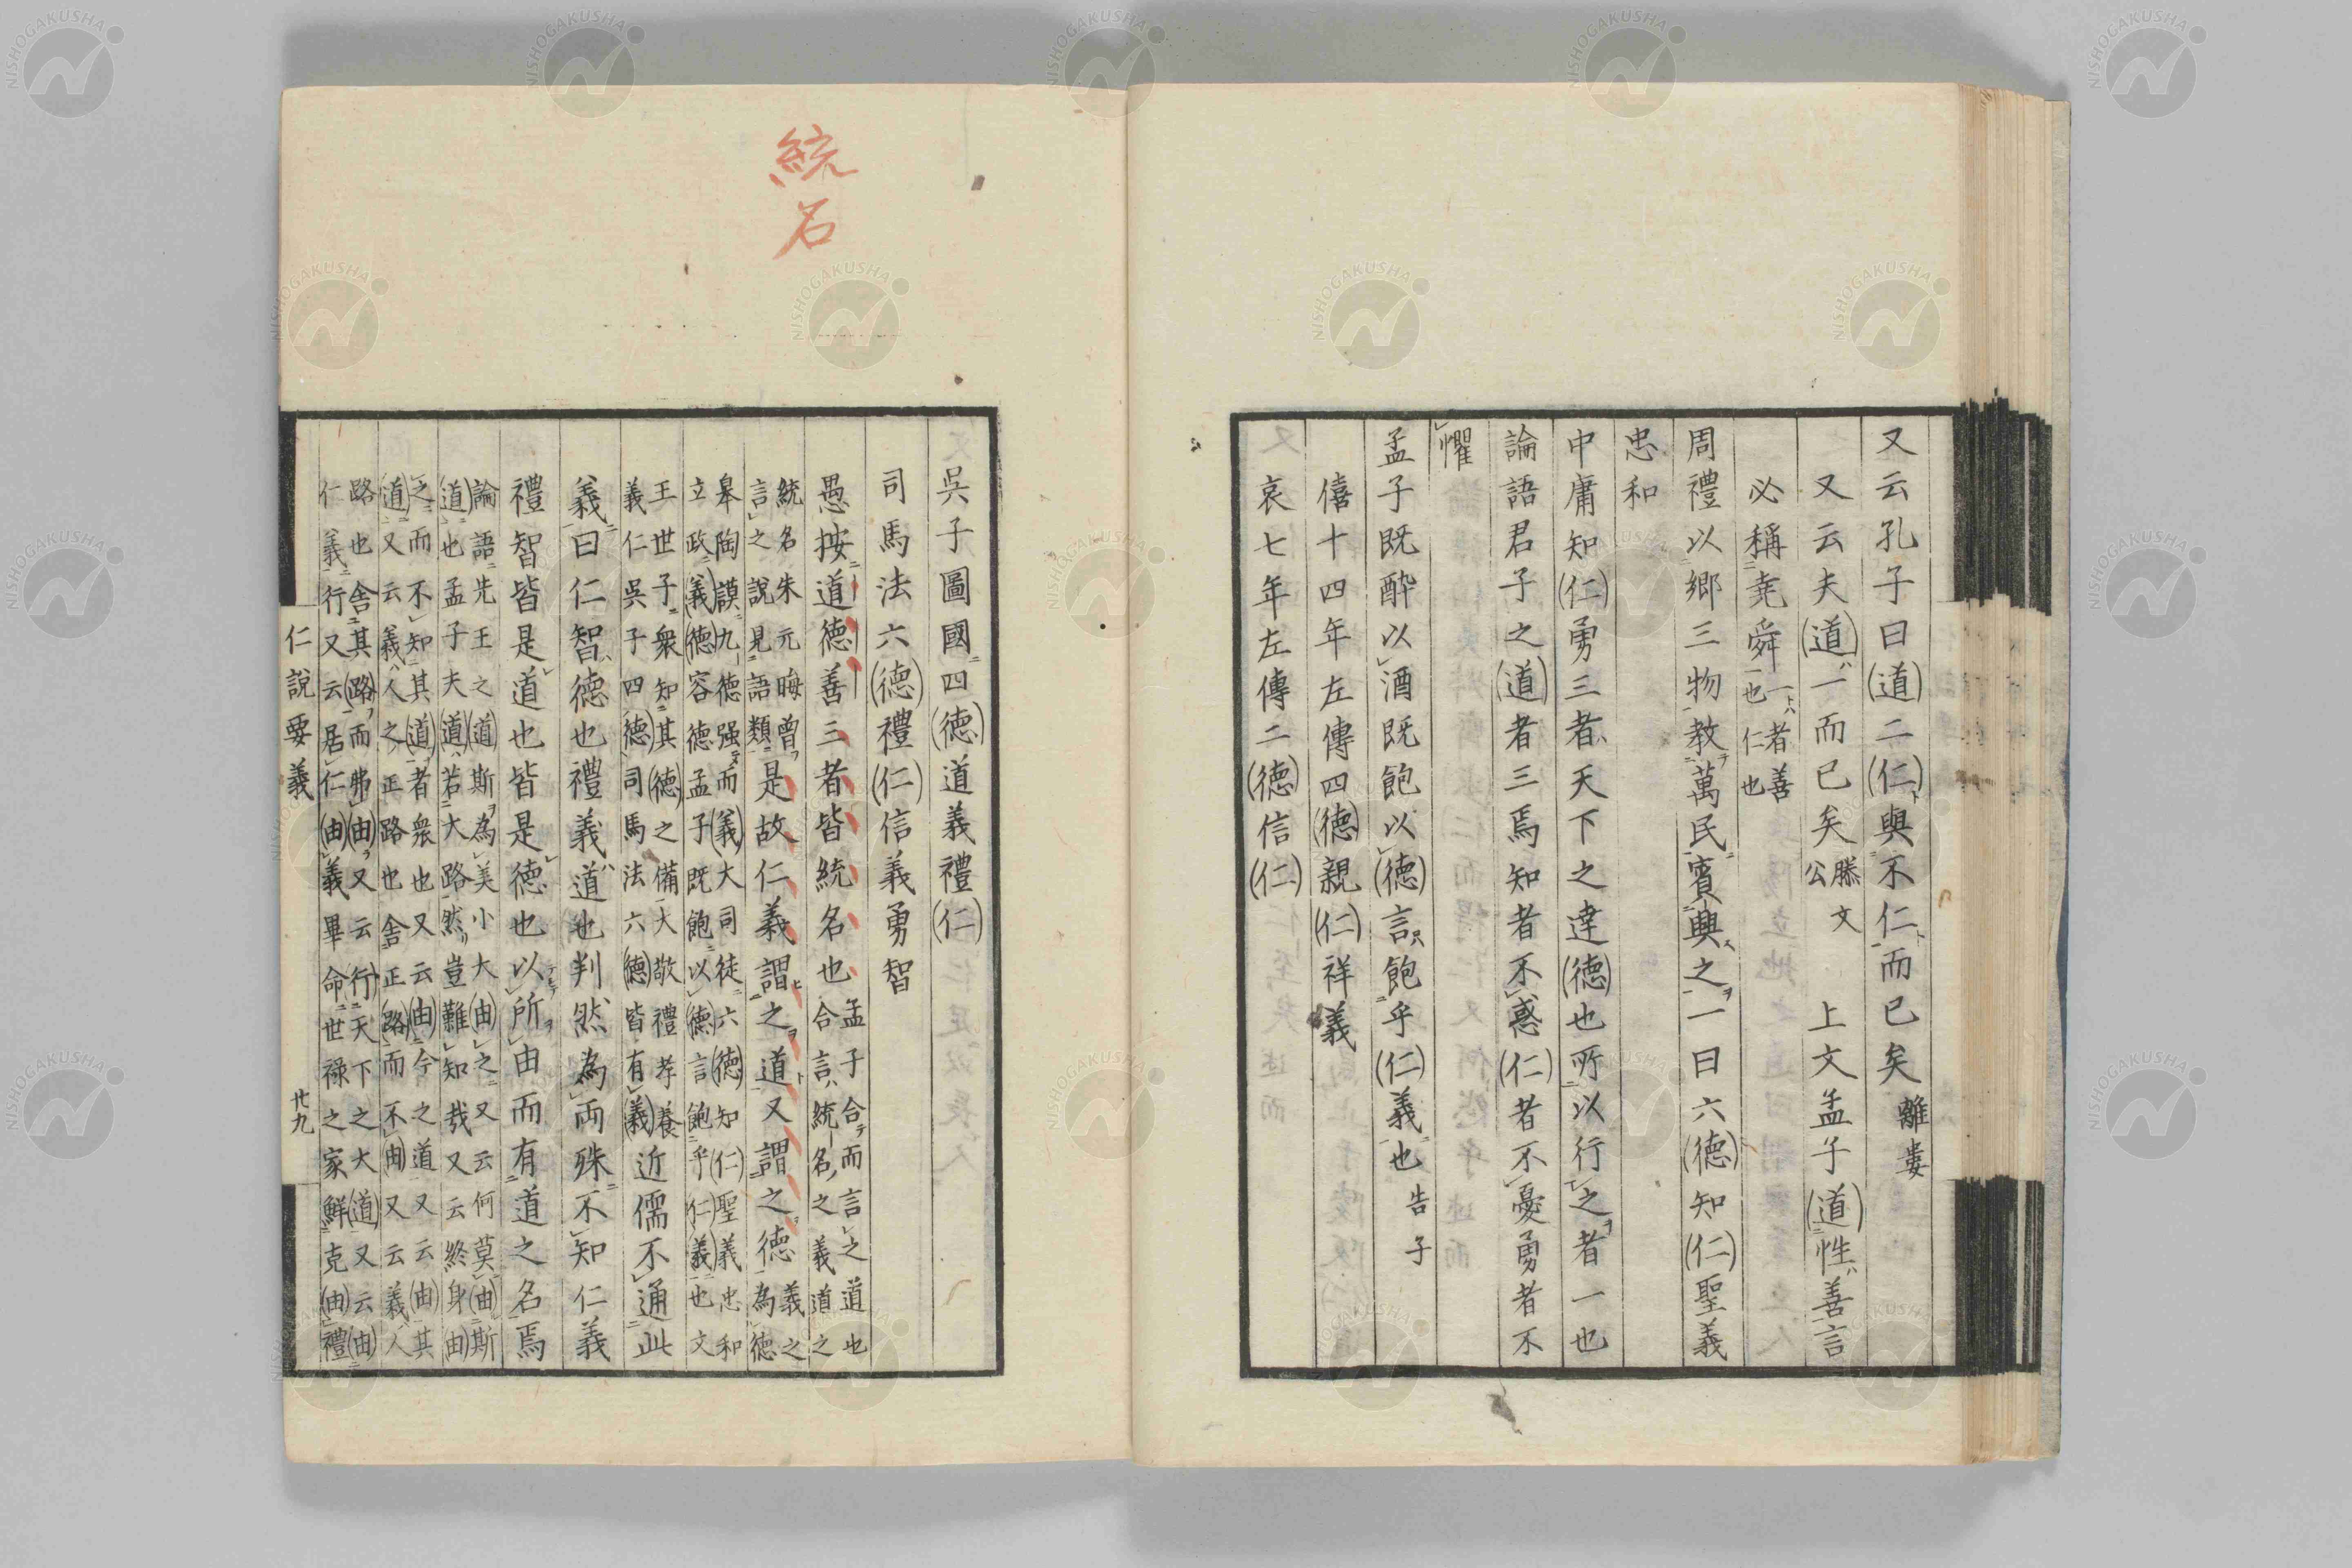 又云孔子曰(道)二(仁)與不仁而已矣離婁
又云夫(道)一而已矣滕文公 上文孟子(道)性善言
必稱堯舜一者善也仁也
周禮以鄉三物教萬民賓興之一曰六(德)知(仁)聖義
忠和
中庸知(仁)勇三者天下之達(德)也所以行之者一也
論語君子之(道)者三焉知者不惑(仁)者不憂勇者不
懼
孟子既醉以酒既飽以(德)言飽乎(仁)義也告子
僖十四年左傳四(德)親(仁)祥義
哀七年左傳二(德)信(仁)
統名
吳子圖國四(德)道義禮(仁)
司馬法六(德)禮(仁)信義勇智
愚按道德善三者皆統名也孟子合而言之道也合言統名之義道之
統名朱元晦曾言之說見語類是故仁義謂之道又謂之德義之為德
皋陶謨九德强而(義)大司徒六(德)知(仁)聖義忠和立政(義)(德)容德孟子既飽以(德)言飽乎(仁)(義)也文
王世子衆知其(德)之備大敬禮孝養義仁吳子四(德)司馬法六(德)皆有(義)近儒不通此
義曰仁智德也禮義道也判然為兩殊不知仁義
禮智皆是道也皆是德也以所由而有道之名焉
論語先王之(道)斯為美小大(由)之又云何莫(由)斯(道)也孟子夫(道)若大路然豈難知哉又云終身(由)
之而不知其(道)者衆也又云(由)今之道又云(由)其(道)又云義人之正路也舍正(路)而不(由)又云義人
路也舍其(路)而弗(由)又云(行)天下之大(道)又云(由)仁義行又云居仁(由)義畢命世祿之家鮮克(由)禮
仁說要義
廿九
NISHOGAKUSHA